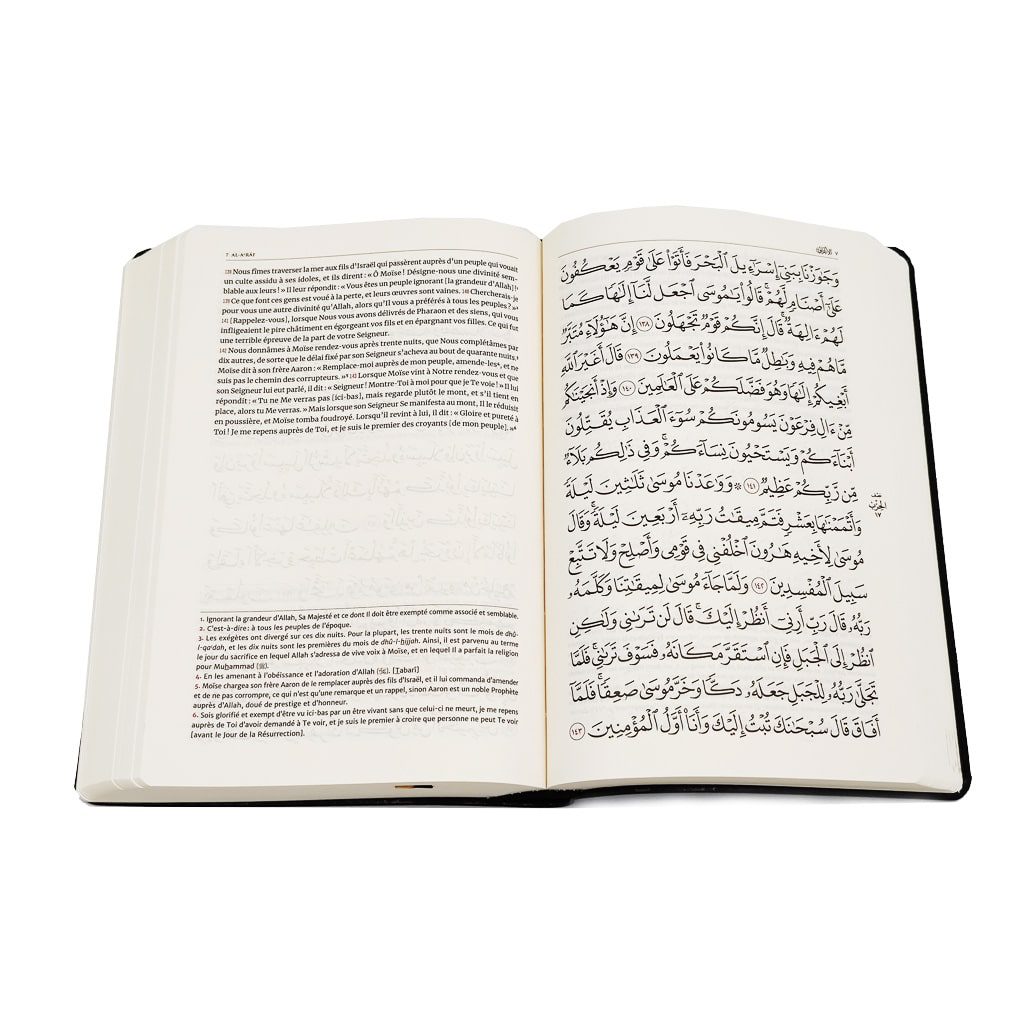 7 AL-A'RÂF
[138] Nous fîmes traverser la mer aux fils d'Israël qui passèrent auprès d'un peuple qui vouait
un culte assidu à ses idoles, et ils dirent : « Ô Moïse ! Désigne-nous une divinité sem-
blable aux leurs ! » Il leur répondit : « Vous êtes un peuple ignorant [la grandeur d'Allah]!¹
[139] Ce que font ces gens est voué à la perte, et leurs œuvres sont vaines. [140] Chercherais-je
pour vous une autre divinité qu'Allah, alors qu'Il vous a préférés à tous les peuples ? »²
[141] [Rappelez-vous], lorsque Nous vous avons délivrés de Pharaon et des siens, qui vous
infligeaient le pire châtiment en égorgeant vos fils et en épargnant vos filles. Ce qui fut
une terrible épreuve de la part de votre Seigneur.
[142] Nous donnâmes à Moïse rendez-vous après trente nuits, que Nous complétâmes par
dix autres, de sorte que le délai fixé par son Seigneur s'acheva au bout de quarante nuits.³
Moïse dit à son frère Aaron : « Remplace-moi auprès de mon peuple, amende-les⁴, et ne
suis pas le chemin des corrupteurs. »⁵ [143] Lorsque Moïse vint à Notre rendez-vous et que
son Seigneur lui eut parlé, il dit : « Seigneur ! Montre-Toi à moi pour que je Te voie ! » Il lui
répondit : « Tu ne Me verras pas [ici-bas], mais regarde plutôt le mont, et s'il tient en
place, alors tu Me verras. » Mais lorsque son Seigneur Se manifesta au mont, Il le réduisit
en poussière, et Moïse tomba foudroyé. Lorsqu'il revint à lui, il dit : « Gloire et pureté à
Toi ! Je me repens auprès de Toi, et je suis le premier des croyants [de mon peuple]. »⁶
1. Ignorant la grandeur d'Allah, Sa Majesté et ce dont Il doit être exempté comme associé et semblable.
2. C'est-à-dire : à tous les peuples de l'époque.
3. Les exégètes ont divergé sur ces dix nuits. Pour la plupart, les trente nuits sont le mois de dhû-
l-qa'dah, et les dix nuits sont les premières du mois de dhû-l-hijjah. Ainsi, il est parvenu au terme
le jour du sacrifice en lequel Allah s'adressa de vive voix à Moïse, et en lequel Il a parfait la religion
pour Muhammad (ﷺ).
4. En les amenant à l'obéissance et l'adoration d'Allah. [Tabarî]
5. Moïse chargea son frère Aaron de le remplacer auprès des fils d'Israël, et il lui commanda d'amender
et de ne pas corrompre, ce qui n'est qu'une remarque et un rappel, sinon Aaron est un noble Prophète
auprès d'Allah, doué de prestige et d'honneur.
6. Sois glorifié et exempt d'être vu ici-bas par un être vivant sans que celui-ci ne meurt, je me repens
auprès de Toi d'avoir demandé à Te voir, et je suis le premier à croire que personne ne peut Te voir
[avant le Jour de la Résurrection].
٧ الأعراف
وَجَٰوَزْنَا بِبَنِىٓ إِسْرَٰٓءِيلَ ٱلْبَحْرَ فَأَتَوْا۟ عَلَىٰ قَوْمٍ يَعْكُفُونَ
عَلَىٰٓ أَصْنَامٍ لَّهُمْ ۚ قَالُوا۟ يَٰمُوسَى ٱجْعَل لَّنَآ إِلَٰهًا كَمَا
لَهُمْ ءَالِهَةٌ ۚ قَالَ إِنَّكُمْ قَوْمٌ تَجْهَلُونَ ١٣٨ إِنَّ هَٰٓؤُلَآءِ مُتَبَّرٌ
مَّا هُمْ فِيهِ وَبَٰطِلٌ مَّا كَانُوا۟ يَعْمَلُونَ ١٣٩ قَالَ أَغَيْرَ ٱللَّهِ
أَبْغِيكُمْ إِلَٰهًا وَهُوَ فَضَّلَكُمْ عَلَى ٱلْعَٰلَمِينَ ١٤٠ وَإِذْ أَنجَيْنَٰكُم
مِّنْ ءَالِ فِرْعَوْنَ يَسُومُونَكُمْ سُوٓءَ ٱلْعَذَابِ يُقَتِّلُونَ
أَبْنَآءَكُمْ وَيَسْتَحْيُونَ نِسَآءَكُمْ ۚ وَفِى ذَٰلِكُم بَلَآءٌ
مِّن رَّبِّكُمْ عَظِيمٌ ١٤١ ۞ وَوَٰعَدْنَا مُوسَىٰ ثَلَٰثِينَ لَيْلَةً
وَأَتْمَمْنَٰهَا بِعَشْرٍ فَتَمَّ مِيقَٰتُ رَبِّهِۦٓ أَرْبَعِينَ لَيْلَةً ۚ وَقَالَ
مُوسَىٰ لِأَخِيهِ هَٰرُونَ ٱخْلُفْنِى فِى قَوْمِى وَأَصْلِحْ وَلَا تَتَّبِعْ
سَبِيلَ ٱلْمُفْسِدِينَ ١٤٢ وَلَمَّا جَآءَ مُوسَىٰ لِمِيقَٰتِنَا وَكَلَّمَهُۥ
رَبُّهُۥ قَالَ رَبِّ أَرِنِىٓ أَنظُرْ إِلَيْكَ ۚ قَالَ لَن تَرَىٰنِى وَلَٰكِنِ
ٱنظُرْ إِلَى ٱلْجَبَلِ فَإِنِ ٱسْتَقَرَّ مَكَانَهُۥ فَسَوْفَ تَرَىٰنِى ۚ فَلَمَّا
تَجَلَّىٰ رَبُّهُۥ لِلْجَبَلِ جَعَلَهُۥ دَكًّا وَخَرَّ مُوسَىٰ صَعِقًا ۚ فَلَمَّآ
أَفَاقَ قَالَ سُبْحَٰنَكَ تُبْتُ إِلَيْكَ وَأَنَا۠ أَوَّلُ ٱلْمُؤْمِنِينَ ١٤٣
نصف
الحزب
١٧